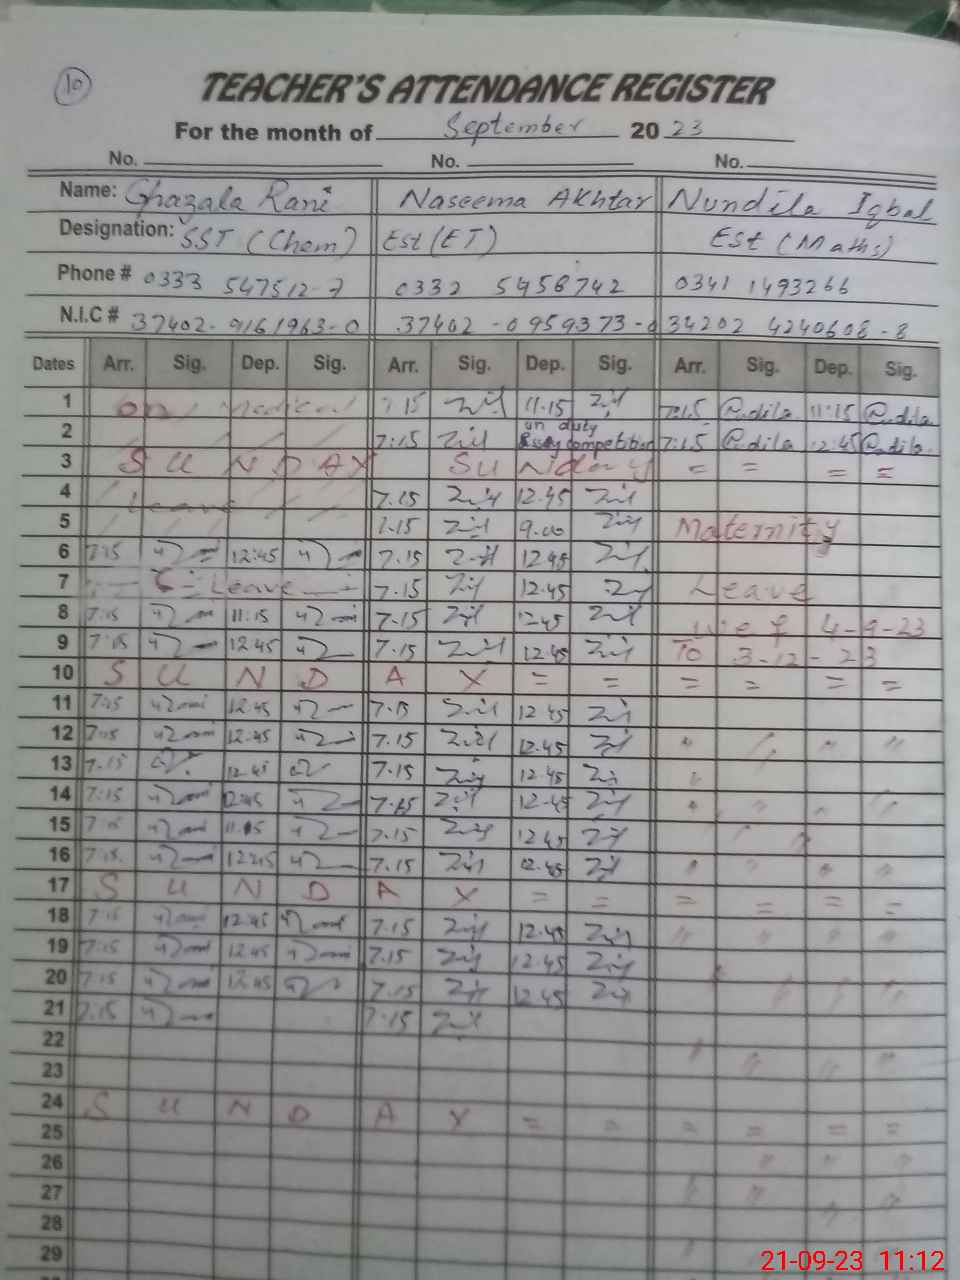 10
TEACHER'S ATTENDANCE REGISTER
For the month of September 2023
No. No. No.
Name: Ghazala Rani Naseema Akhtar Nundila Iqbal
Designation: SST (Chem) Est (ET) Est (Maths)
Phone # 0333 547512-7 0332 5456742 0341 1493266
N.I.C # 37402-9161963-0 37402-0959373- 34202 4240608-8
Dates Arr. Sig. Dep. Sig. Arr. Sig. Dep. Sig. Arr. Sig. Dep. Sig.
1 On Medical 7.15 11.15 7:15 11:15
2 7:15 on duty Essay competition 7:15 12:45
3 SUNDAY Sunday = = = =
4 Leave 7.15 12.45
5 7.15 9.00 Maternity
6 7:15 12:45 7.15 12.45
7 Leave 7.15 12.45 Leave
8 7:15 11:15 7.15 12.45 w e f 4-9-23
9 7:15 12:45 7.15 12.45 To 3-12-23
10 S U N D A Y = = = = = =
11 7:15 12:45 7.15 12.45
12 7:15 12:45 7.15 12.45 " " " "
13 7.15 12.45 7.15 12.45 "
14 7:15 12:45 7.15 12.45 " " " "
15 7:15 11.15 7.15 12.45 " "
16 7:15 12:45 7.15 12.45 " " " "
17 S U N D A Y = = = = = =
18 7:15 12:45 7.15 12.45 " " " "
19 7:15 12:45 7.15 12.45
20 7:15 12:45 7.15 12.45 " " " "
21 7.15 7.15
22
23 " " " "
24 S U N D A Y = = = = = =
25
26 " " "
27 " " "
28 "
29 "
21-09-23 11:12